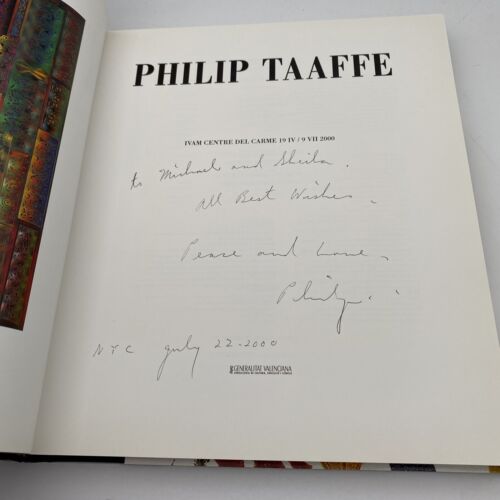 PHILIP TAAFFE
IVAM CENTRE DEL CARME 19 IV / 9 VII 2000
to Michael and Sheila.
All Best Wishes -
Peace and Love,
Philip.
NYC July 22-2000
GENERALITAT VALENCIANA